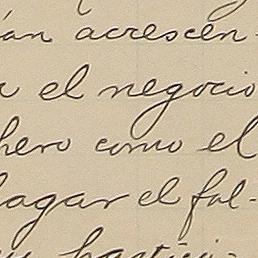 án acrescen-
a el negocio
hero como el
hagar el fal-